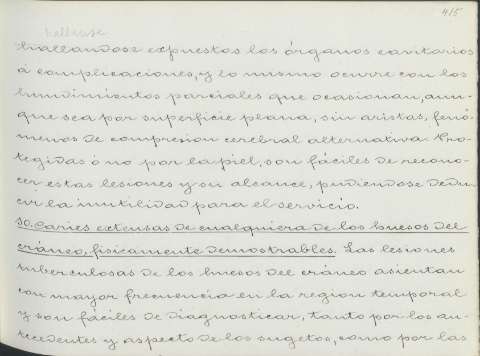 415
hallense
hallandose expuestos los órganos cavitarios
á complicaciones, y lo mismo ocurre con los
hundimientos parciales que ocasionan, aun-
que sea por superficie plana, sin aristas, fenó-
menos de compresion cerebral alternativa. Pro-
tegidas ó no por la piel, son fáciles de recono-
cer estas lesiones y su alcance, pudiendose dedu-
cir la inutilidad para el servicio.
50. Caries extensas de cualquiera de los huesos del
cráneo, fisicamente demostrables. Las lesiones
tuberculosas de los huesos del cráneo asientan
con mayor frecuencia en la region temporal
y son fáciles de diagnosticar, tanto por los an-
tecedentes y aspecto de los sugetos, como por las